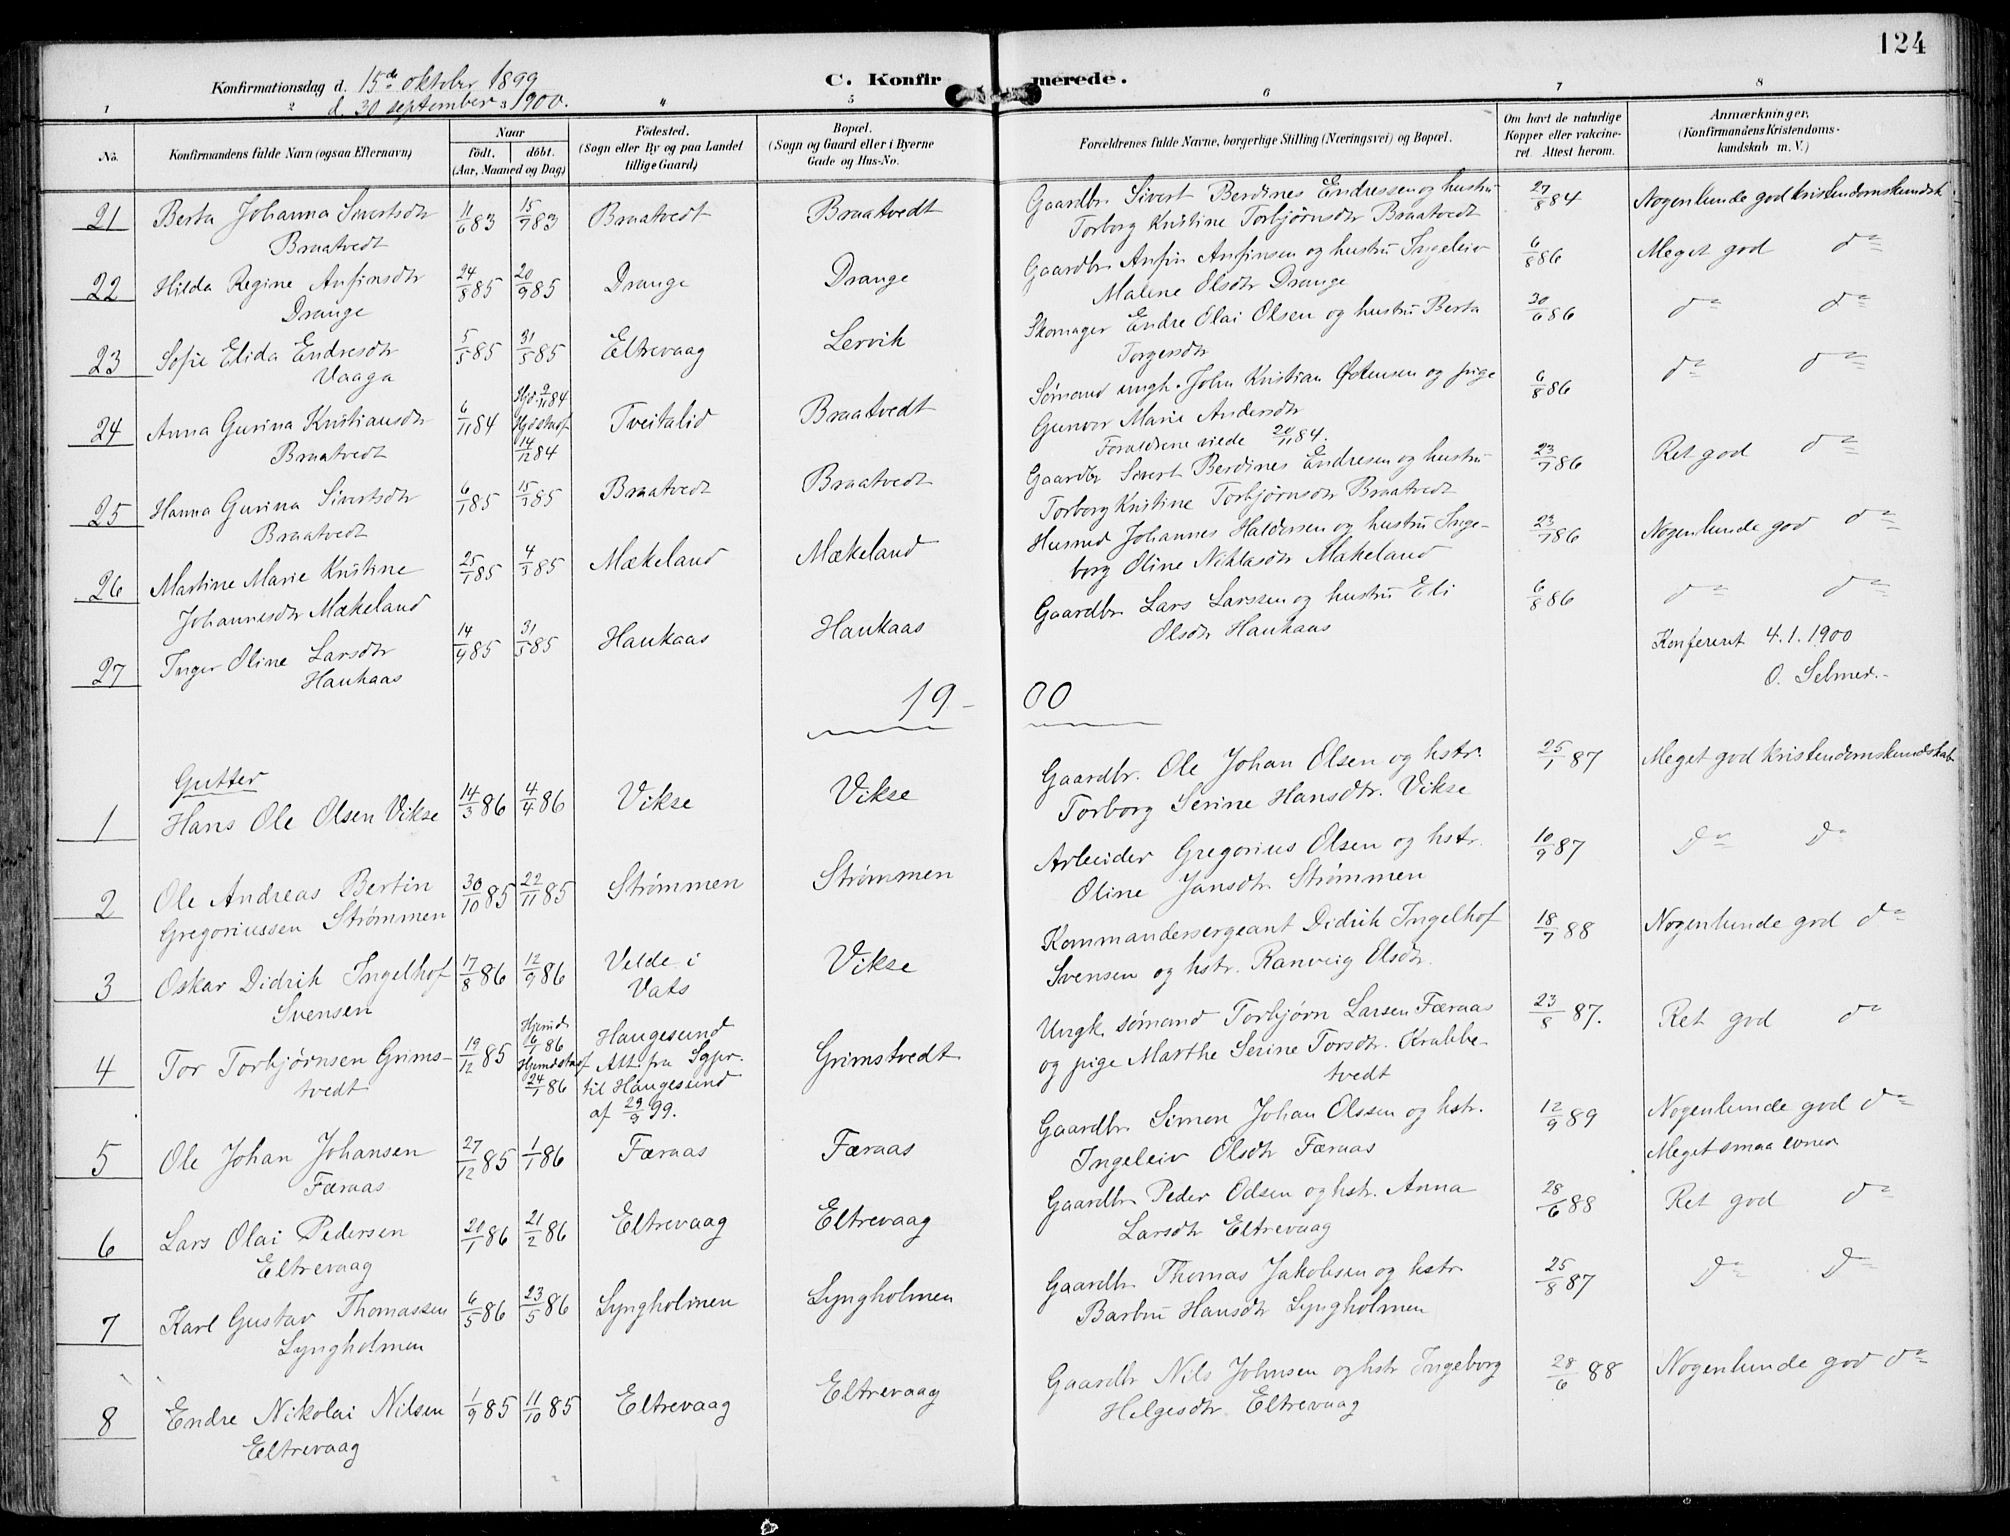 124
Konfirmationsdag d. 15de oktober 1899
d. 30 september 1900.
C. Konfirmerede.
1 2 3 4 5 6 7 8
No. Konfirmandens fulde Navn (ogsaa Efternavn) Naar født. døbt. (Aar, Maaned og Dag) Fødested. (Sogn eller By og paa Landet tillige Gaard) Bopæl. (Sogn og Gaard eller i Byerne Gade og Hus-No. Forældrenes fulde Navne, borgerlige Stilling (Næringsvei) og Bopæl. Om havt de naturlige Kopper eller vakcineret. Attest herom. Anmærkninger. (Konfirmandens Kristendomskundskab m. V.)
21 Berta Johanna Sivertsdtr 11/6 83 15/7 83 Braatvedt Braatvedt Gaardbr. Sivert Berdines Endressen og hustru 27/8 84 Nogenlunde god kristendomskundsk
Braatvedt Torborg Kristine Torbjørnsdtr Braatvedt
22 Hilda Regine Anfinsdtr 24/8 85 20/9 85 Drange Drange Gaardbr. Anfin Anfinsen og hustru Ingeleiv 6/8 86 Meget god do
Drange Malene Olsdtr Drange
23 Sofie Elida Endresdtr 5/5 85 31/5 85 Eltrevaag Lervik Skomager Endre Olai Olsen og hustru Berta 30/6 86 do do
Vaaga Torgersdtr
24 Anna Gurina Kristiansdtr 6/11 84 Hjd. 9/11 84 Hjdst.f. 14/12 84 Tveitalid Braatvedt Sømand ungk. John Kristian Østensen og pige 6/8 86 do do
Braatvedt Gunvor Marie Andersdtr
Forældrene viede 20/11 84.
25 Hanna Gurina Sivertsdtr 6/1 85 15/3 85 Braatvedt Braatvedt Gaardbr Sivert Berdines Endresen og hustru 23/7 86 Ret god do
Braatvedt Torborg Kristine Torbjørnsdtr Braatvedt
26 Martine Marie Kristine 25/1 85 4/3 85 Mækeland Mækeland Husmd Johannes Haldorsen og hustru Inge- 23/7 86 Nogenlunde god do
Johannesdtr Mækeland borg Oline Niklasdtr Mækeland
27 Inger Oline Larsdtr 14/4 85 31/5 85 Haukaas Haukaas Gaardbr. Lars Larssen og hustru Eli 6/8 86 do do
Haukaas Olsdtr Haukaas
Konfereret 4.1.1900
O. Selmer.
19-00
Gutter
1 Hans Ole Olsen Vikse 14/3 86 4/4 86 Vikse Vikse Gaardbr. Ole Johan Olsen og hstr. 25/1 87 Meget god kristendomskundskab
Torborg Serine Hansdtr. Vikse
2 Ole Andreas Bertin 30/10 85 22/11 85 Strømmen Strømmen Arbeider Gregorius Olsen og hstr. 10/9 87 do do
Gregoriussen Strømmen Oline Jansdtr. Strømmen
3 Oskar Didrik Ingelhof 17/8 86 12/9 86 Velde i Vats Vikse Kommandersergeant Didrik Ingelhof 18/7 88 Nogenlunde god do
Svensen Svensen og hstr. Ranveig Elsdtr.
4 Tor Torbjørnsen Grims- 19/12 85 Hjemd. 6/1 86 Hjemdst.af 24/1 86 Haugesund Att. fra Sgpr. til Haugesund af 29/9 99. Grimstvedt Ungk. sømand Torbjørn Larsen Færaas 23/8 87. Ret god do
tvedt og pige Marthe Serine Torsdtr. Krabbe-
tvedt
5 Ole Johan Johansen 27/12 85 1/1 86 Færaas Færaas Gaardbr. Simon Johan Olssen og hstr. 12/9 89 Nogenlunde god do
Færaas Ingeleiv Olsdtr Færaas Meget smaa evner
6 Lars Olai Pedersen 20/1 86 21/2 86 Eltrevaag Eltrevaag Gaardbr. Peder Odsen og hstr. Anna 28/6 88 Ret god do
Eltrevaag Larsdtr Eltrevaag
7 Karl Gustav Thomassen 6/5 86 23/5 86 Lyngholmen Lyngholmen Gaardbr. Thomas Jakobsen og hstr 25/8 87 do do
Lyngholmen Barbru Hansdtr Lyngholmen
8 Endre Nikolai Nilsen 1/9 85 11/10 85 Eltrevaag Eltrevaag Gaardbr Nils Johnsen og hstr Ingeborg 28/6 88 Nogenlunde god do
Eltrevaag Helgesdtr. Eltrevaag